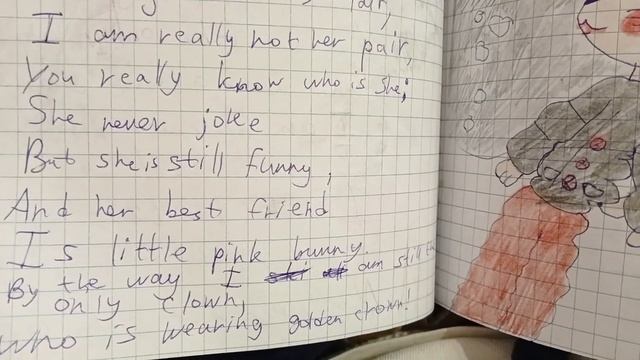 I am really not her pair,
You really know who is she;
She never joke
But she is still funny,
And her best friend
Is little pink bunny.
By the way I am still the
only clown,
who is wearing golden crown!